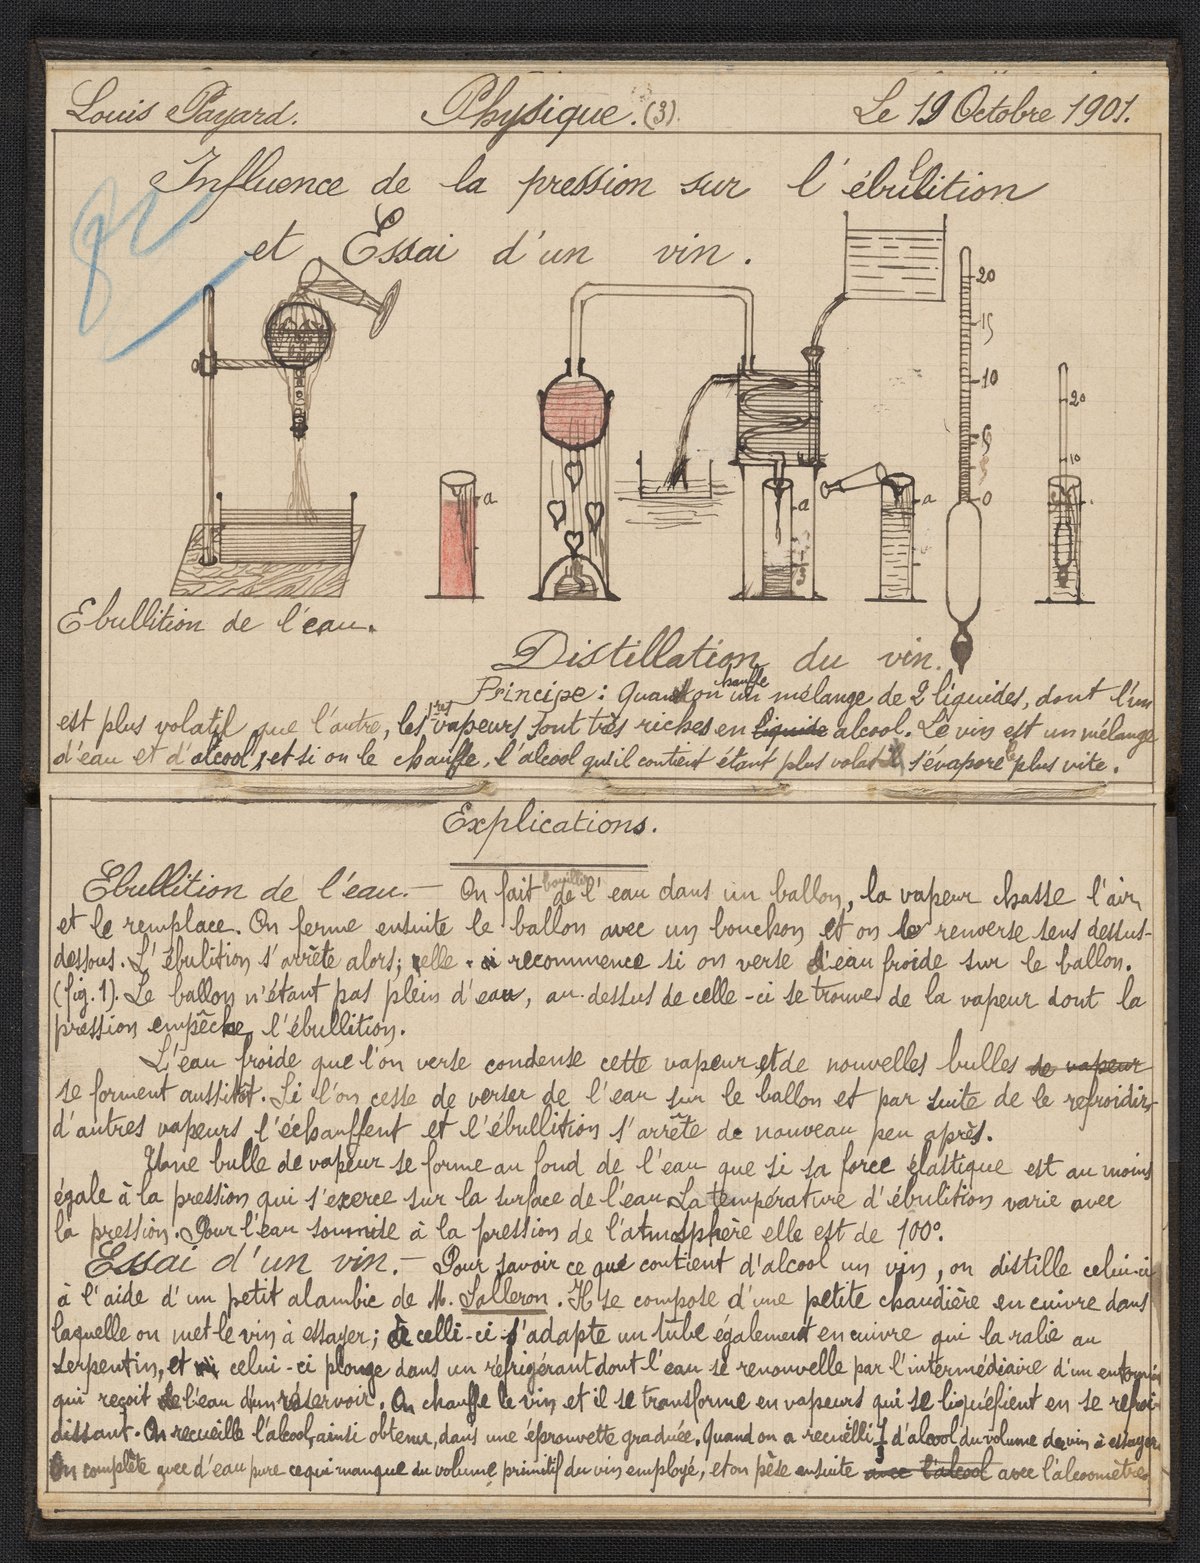 Louis Payard. Physique. (3). Le 19 Octobre 1901.
Influence de la pression sur l'ébulition
et Essai d'un vin.
20
15
10
5
0
20
10
a
a
a
1/3
Ebullition de l'eau.
Distillation du vin.
Principe: Quand on chauffe un mélange de 2 liquides, dont l'un
est plus volatil que l'autre, les 1res vapeurs sont très riches en liquide alcool. Le vin est un mélange
d'eau et d'alcool, et si on le chauffe, l'alcool qu'il contient étant plus volatil s'évapore plus vite.
Explications.
Ebullition de l'eau. — On fait bouillir de l'eau dans un ballon, la vapeur chasse l'air
et le remplace. On ferme ensuite le ballon avec un bouchon et on le renverse sens dessus-
dessous. L'ébulition s'arrête alors; elle recommence si on verse d'eau froide sur le ballon.
(fig. 1). Le ballon n'étant pas plein d'eau, au-dessus de celle-ci se trouve de la vapeur dont la
pression empêche l'ébullition.
L'eau froide que l'on verse condense cette vapeur, et de nouvelles bulles de vapeur
se forment aussitôt. Si l'on cesse de verser de l'eau sur le ballon et par suite de le refroidir,
d'autres vapeurs l'échauffent et l'ébullition s'arrête de nouveau peu après.
Une bulle de vapeur se forme au fond de l'eau que si sa force élastique est au moins
égale à la pression qui s'exerce sur la surface de l'eau. La température d'ébulition varie avec
la pression. Pour l'eau soumise à la pression de l'atmosphère elle est de 100°.
Essai d'un vin. — Pour savoir ce que contient d'alcool un vin, on distille celui-ci
à l'aide d'un petit alambic de M. Salleron. Il se compose d'une petite chaudière en cuivre dans
laquelle on met le vin à essayer; à celli-ci s'adapte un tube également en cuivre qui la ralie au
serpentin, et celui-ci plonge dans un réfrigérant dont l'eau se renouvelle par l'intermédiaire d'un entonnoir
qui reçoit de l'eau d'un réservoir. On chauffe le vin et il se transforme en vapeurs qui se liquéfient en se refroi-
dissant. On recueille l'alcool, ainsi obtenu, dans une éprouvette graduée. Quand on a recueilli 1/3 d'alcool du volume du vin à essayer
On complète avec d'eau pure ce qui manque du volume primitif du vin employé, et on pèse ensuite avec l'alcool avec l'alcoomètre